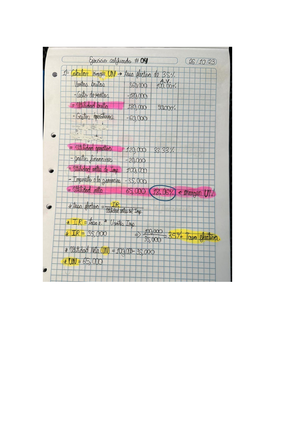 Ejercicio calificado # 04
1- Calcular Margen UN → tasa efectiva de 35%
A.V.
Ventas brutas 360,000 100.00%
- Costo de ventas - 180,000
= Utilidad bruta 180,000 50.00%
- Gastos operativos - 60,000
= Utilidad operativa 120,000 33.33%
- gastos financieros - 20,000
= Utilidad antes de Imp 100,000
- Impuesto a la ganancia - 35,000
= Utilidad neta 65,000 18.06% → margen UN
* tasa efectiva = IR / Utilidad antes de Imp
* IR = tasa e * U antes Imp
* IR = 35,000
35,000 = 35% tasa efectiva
* Utilidad neta UN = 100,000 - 35,000
* UN = 65,000